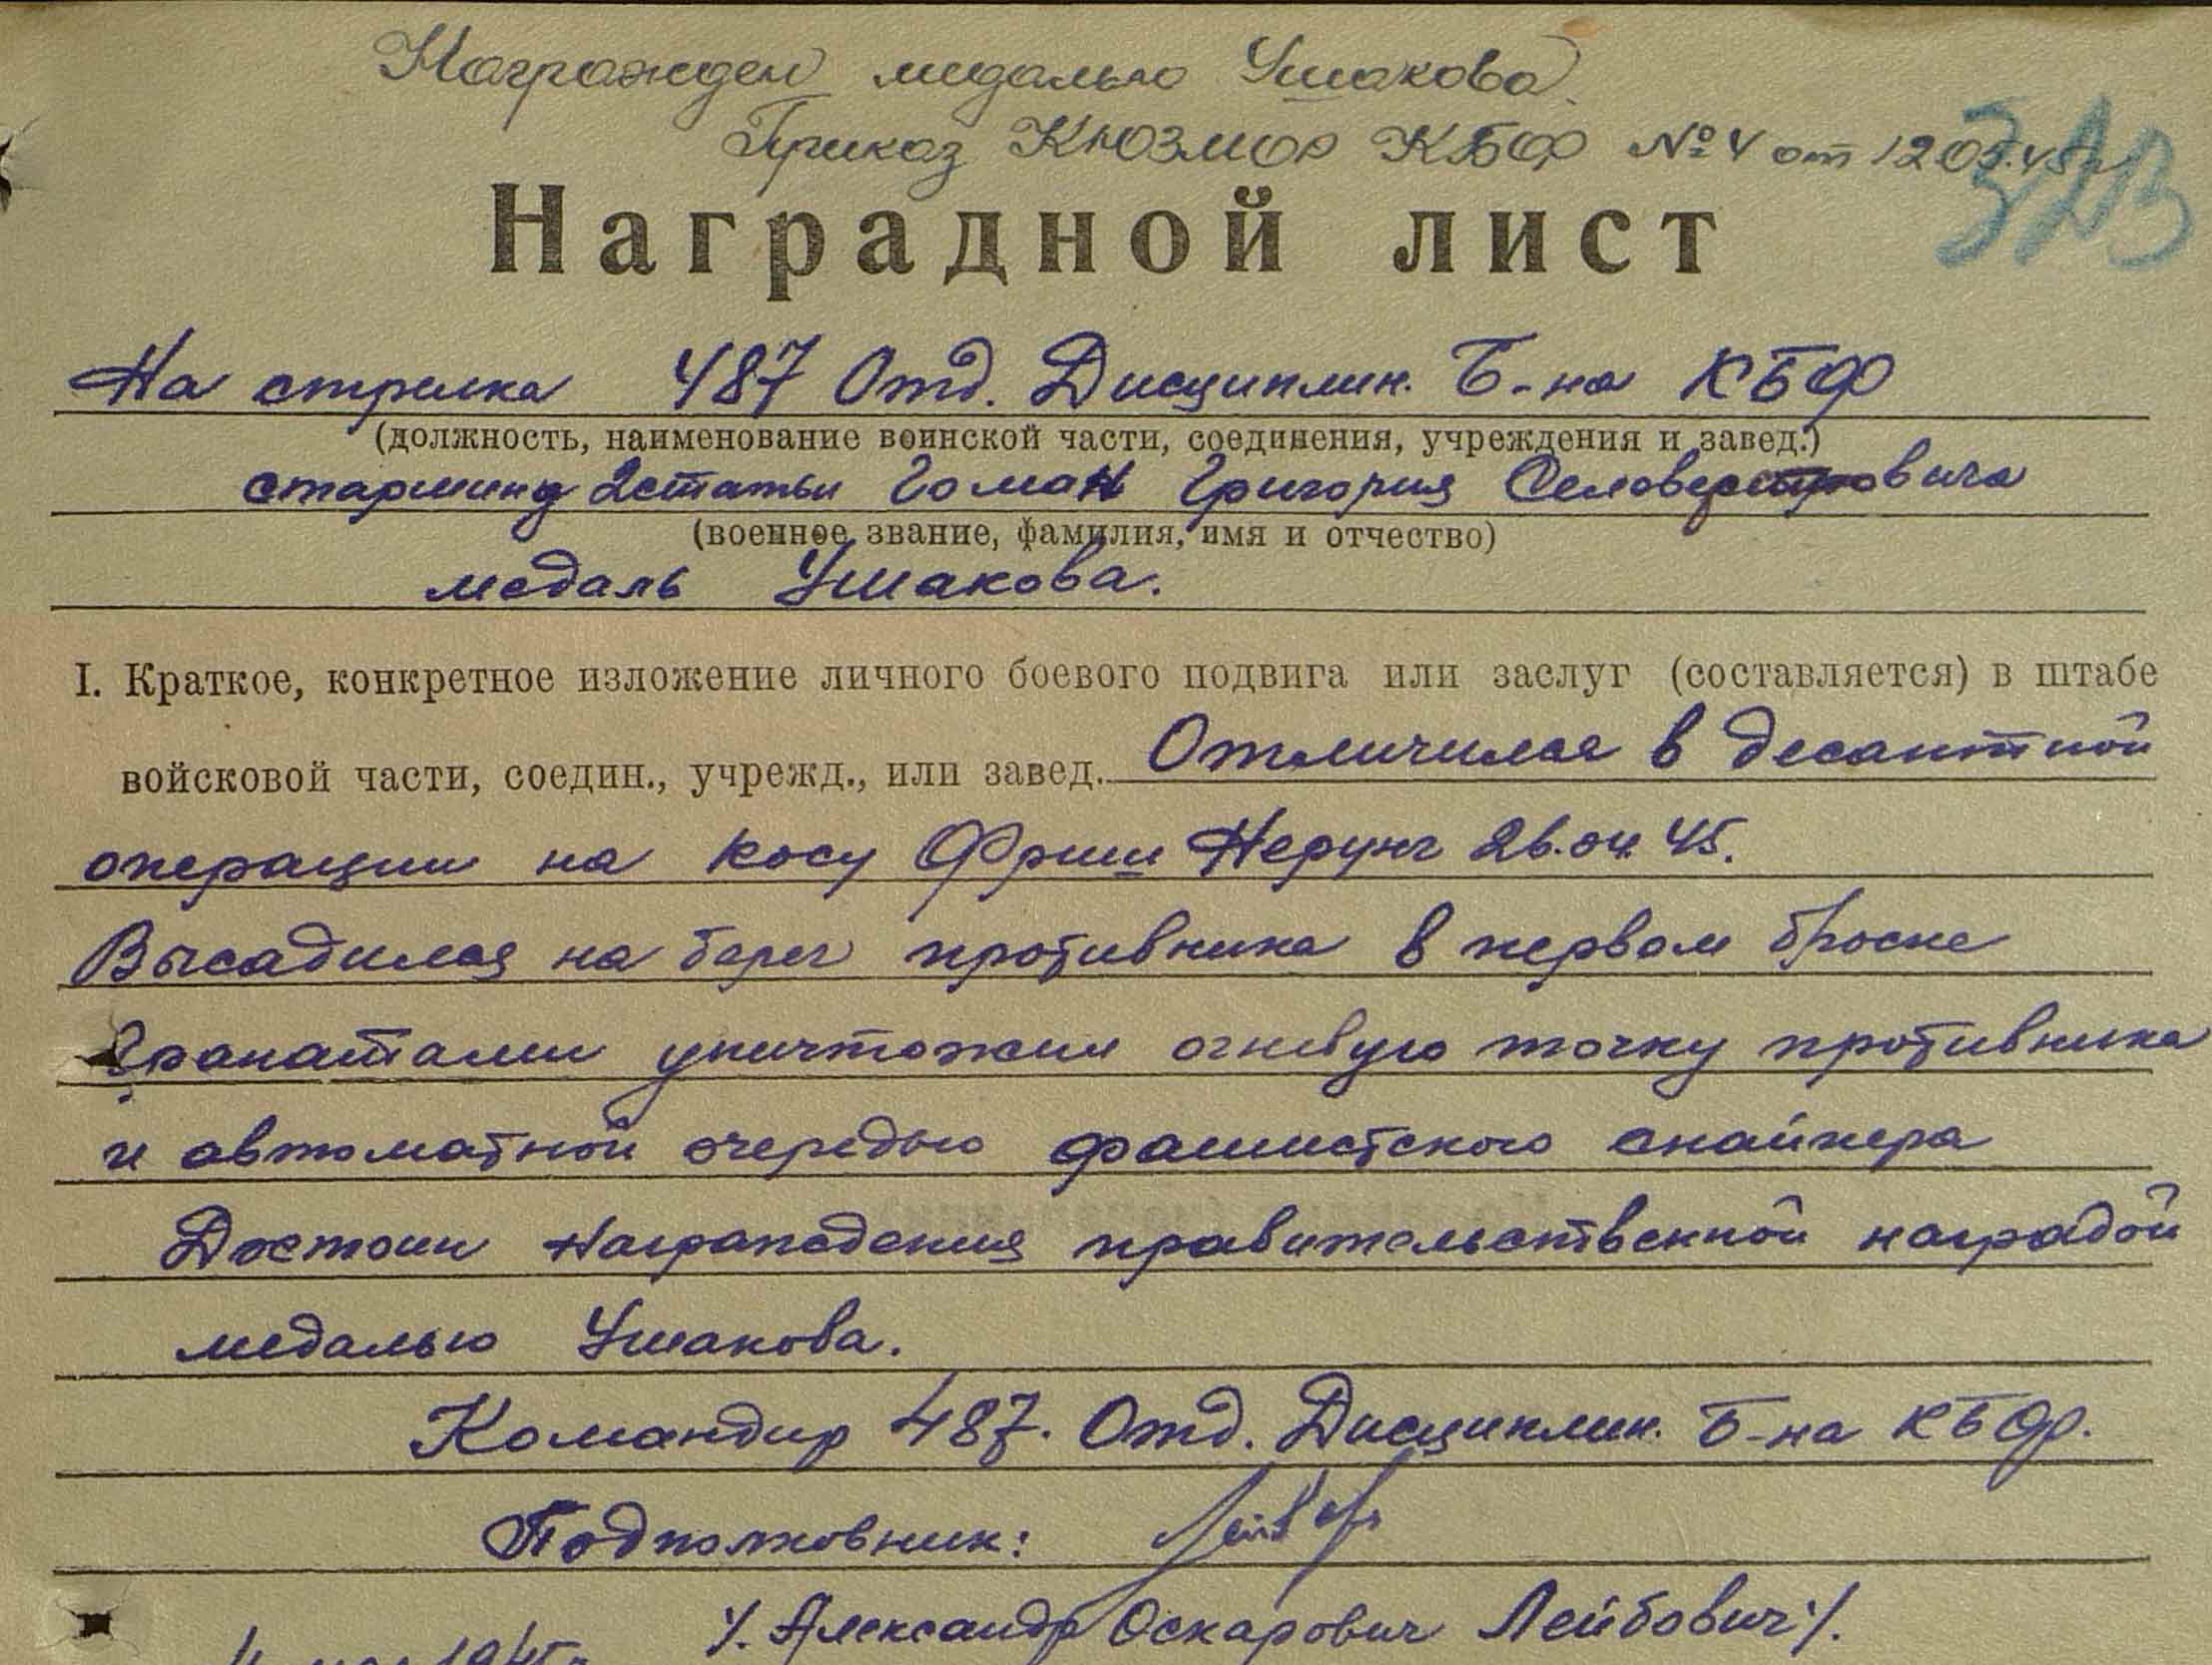 Награжден медалью Ушакова
Приказ КЮЗМОР КБФ № 4 от 12.05.45г
Наградной лист
На стрелка 487 Отд. Дисциплин. Б-на КБФ
(должность, наименование воинской части, соединения, учреждения и завед.)
старшина 2 статьи Гоман Григория Селоверстровича
(военное звание, фамилия, имя и отчество)
медаль Ушакова.
I. Краткое, конкретное изложение личного боевого подвига или заслуг (составляется) в штабе
войсковой части, соедин., учрежд., или завед. Отличился в десантной
операции на косу Фриш Нерунг 26.04.45.
Высадился на берег противника в первом броске
Гранатами уничтожил огневую точку противника
и автоматной очередью фашистского снайпера
Достоин награждения правительственной наградой
медалью Ушакова.
Командир 487. Отд. Дисциплин. Б-на КБФ.
Подполковник:
/. Александр Оскарович Лейбович /.